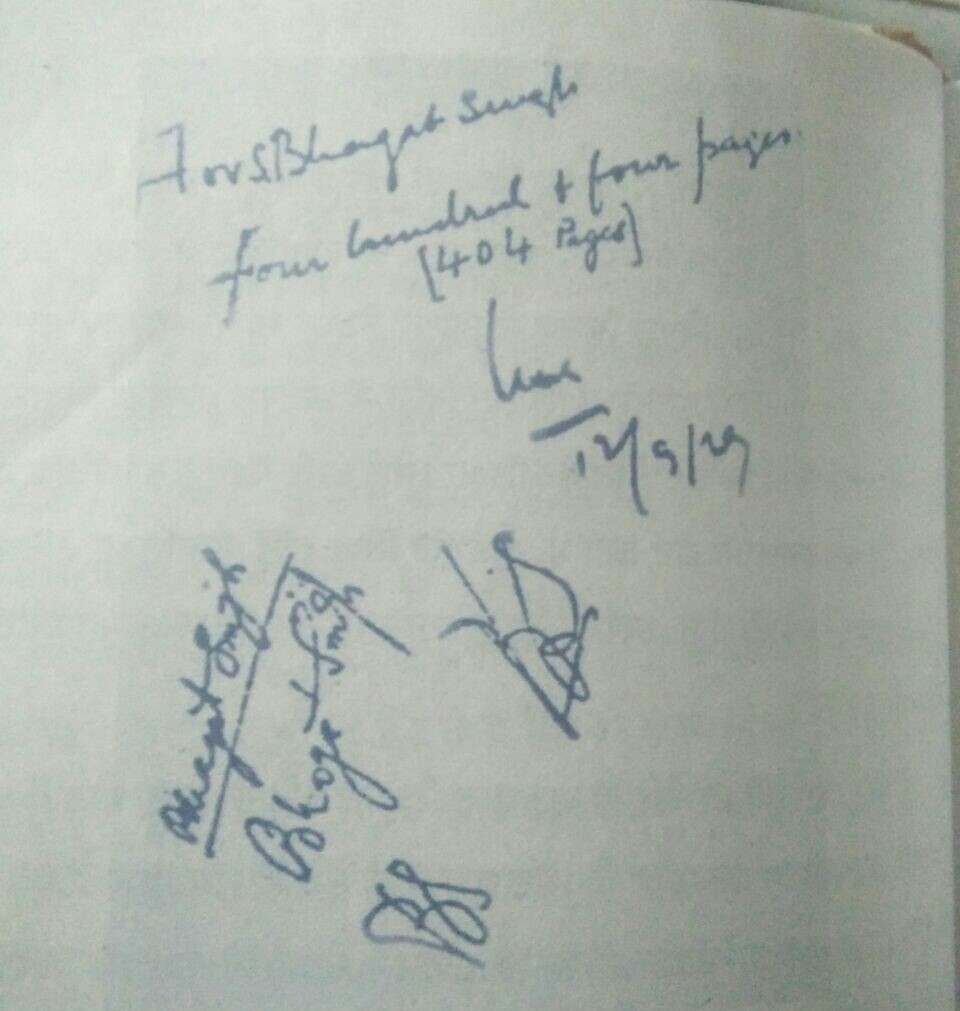 For S. Bhagat Singh
four hundred & four pages.
[404 Pages]
12/9/29
Bhagat Singh
Bhagat Singh
BS